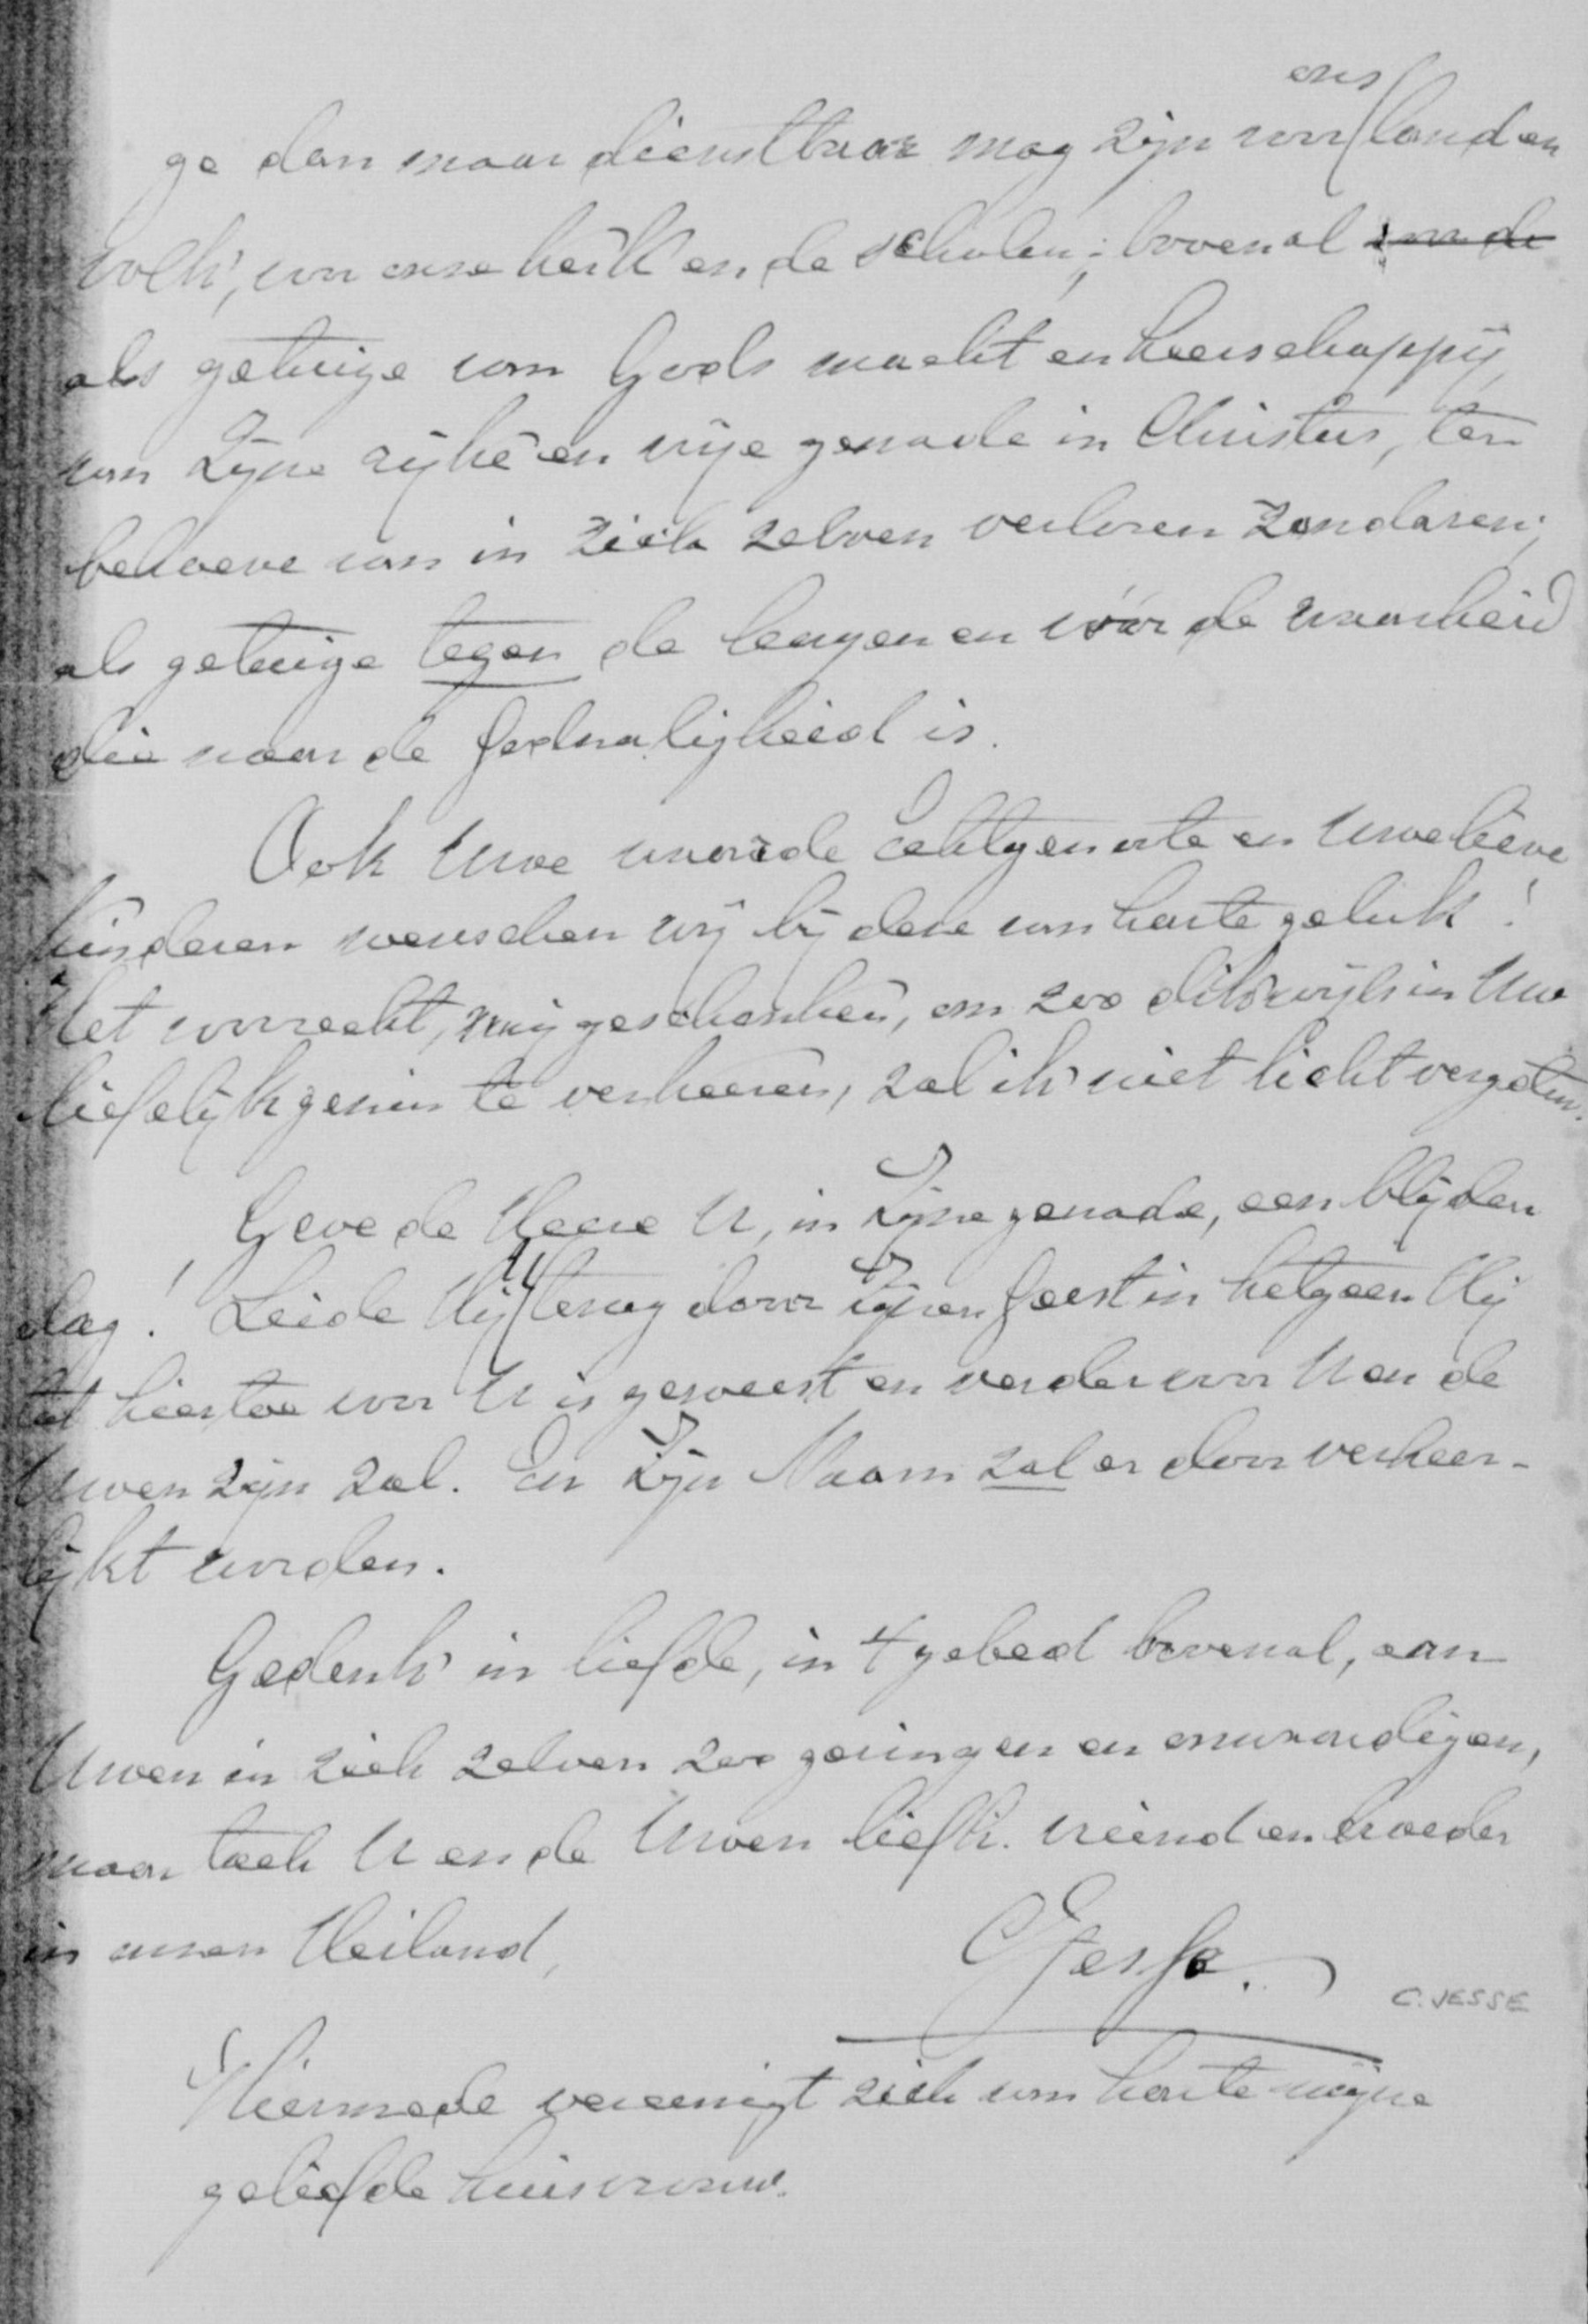 ons
ge dan maar dienstbaar mag zijn voor land en
volk, voor onze kerk en de scholen; bovenal voor de
als getuige van Gods macht en heerschappij,
van Zijne rijke en vrije genade in Christus, ten
behoeve van in zich zelven verloren zondaren;
als getuige tegen de leugen en vóór de waarheid
die naar de Godzaligheid is.
Ook Uwe waarde Echtgenoote en Uwe lieve
kinderen wenschen wij bij deze van harte geluk!
Het voorrecht, mij geschonken, om zoo dikwijls in Uw
liefelijk gezin te verkeeren, zal ik niet licht vergeten.
Geve de Heere U, in Zijne genade, een blijden
dag! Leide Hij U terug door Zijnen Geest in hetgeen Hij
tot hiertoe voor U is geweest en verder voor U en de
Uwen zijn zal. En Zijn Naam zal er door verheer-
lijkt worden.
Gedenk in liefde, in 't gebed bovenal, aan
Uwen in zich zelven zoo geringen en onwaardigen,
maar toch U en de Uwen liefh. vriend en broeder
in onzen Heiland,
C Jesse.
C. JESSE
Hiermede vereenigt zich van harte mijne
geliefde huisvrouw.